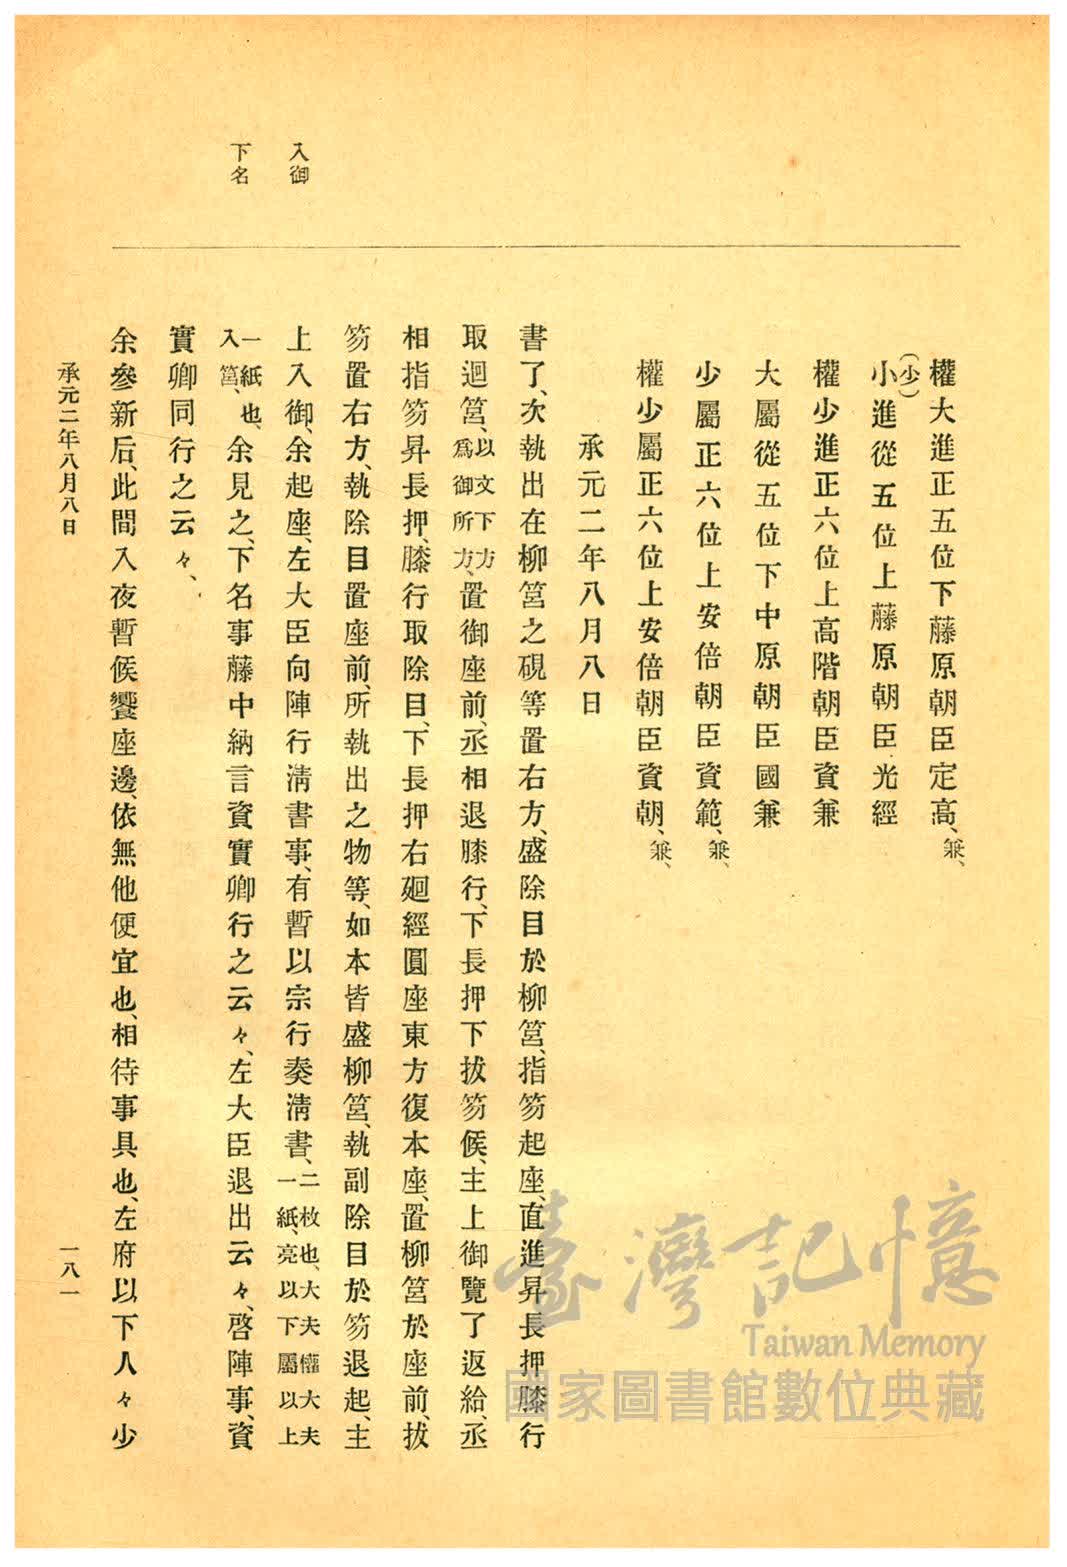 入御
下名
權大進正五位下藤原朝臣定高、兼、
(少)
小進從五位上藤原朝臣光經
權少進正六位上高階朝臣資兼
大屬從五位下中原朝臣國兼
少屬正六位上安倍朝臣資範、兼、
權少屬正六位上安倍朝臣資朝、兼、
承元二年八月八日
書了、次執出在柳筥之硯等置右方、盛除目於柳筥、指笏起座、直進昇長押膝行
取迴筥、以文下方爲御所方、置御座前、丞相退膝行、下長押下拔笏候、主上御覽了返給、丞
相指笏昇長押、膝行取除目、下長押右廻經圓座東方復本座、置柳筥於座前、拔
笏置右方、執除目置座前、所執出之物等、如本皆盛柳筥、執副除目於笏退起、主
上入御、余起座、左大臣向陣行淸書事、有暫以宗行奏淸書、二枚也、大夫權大夫一紙、亮以下屬以上
一紙也、入筥、余見之、下名事藤中納言資實卿行之云々、左大臣退出云々、啓陣事、資
實卿同行之云々、
余參新后、此間入夜暫候饗座邊、依無他便宜也、相待事具也、左府以下人々少
承元二年八月八日
一八一
臺灣記憶
Taiwan Memory
國家圖書館數位典藏